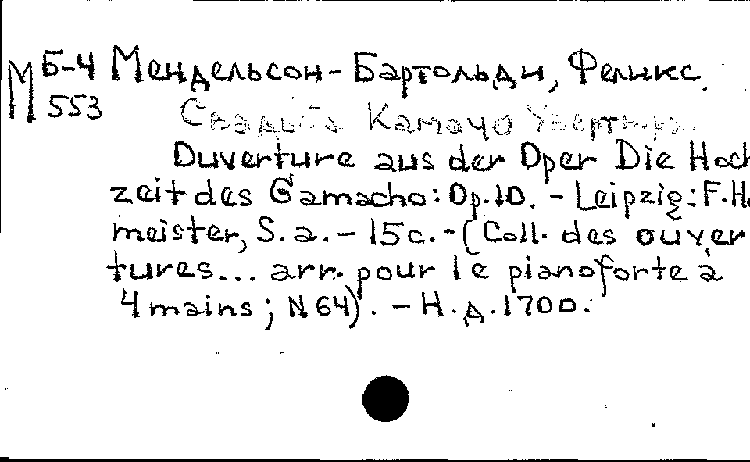 М Б-4 Мендельсон-Бартольди, Феликс.
553 Свадьба Камачо Увертюра.
Ouverture aus der Oper Die Hoch
zeit des Gamacho: Op.10. - Leipzig: F. Ho
meister, S.a. - 15c. - (Coll. des ouver
tures... arr. pour le pianoforte à
4 mains; N 64). - Н.д. 1700.